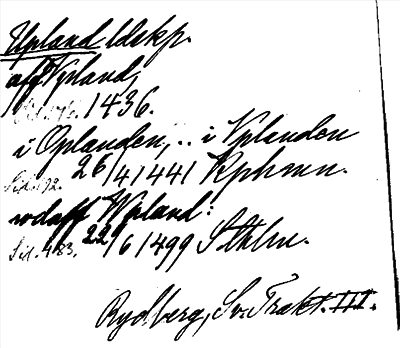 Upland ldskp.
aff Vpland,
1436.
i Oplanden, .. i Vplanden
Sid. 192. 26/4 1441 Kphmn.
wdaff Wpland:
Sid. 483. 22/6 1499 Sthlm.
Rydberg, Sv. Trakt. III.